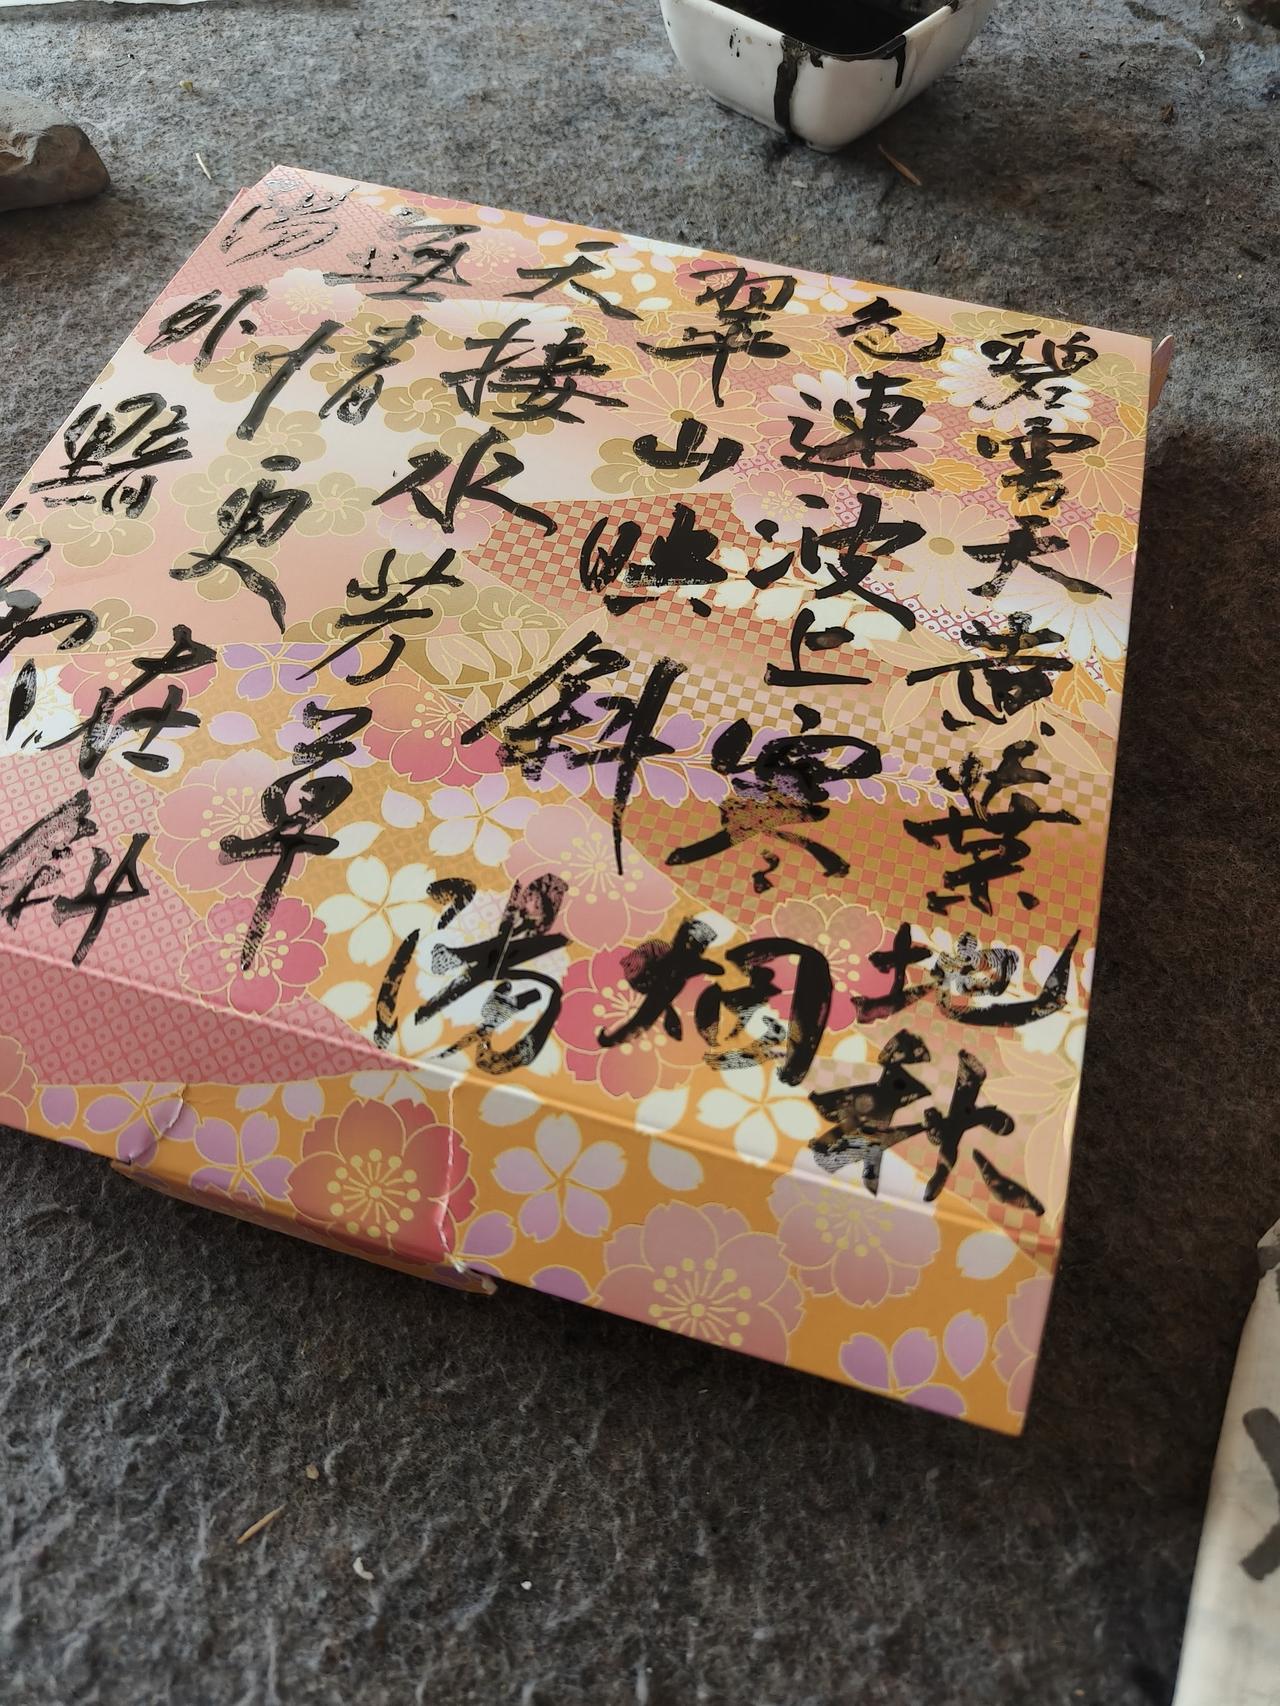 碧雲天黃葉地秋
色連波上寒烟
翠山映斜陽
天接水芳草
無情更在斜
陽外黯